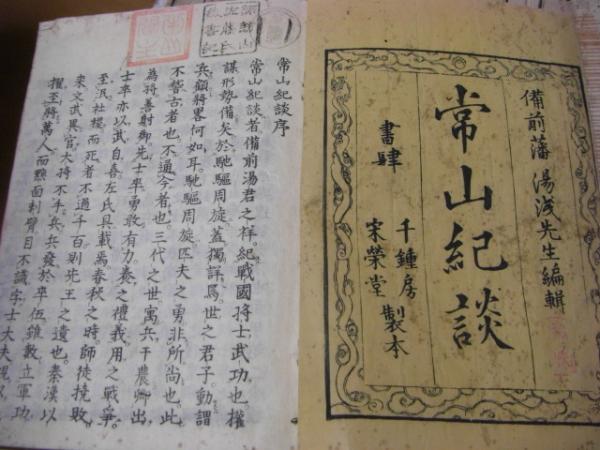 備前藩 湯浅先生編輯
常山紀談
書肆
千鍾房
宋榮堂
製本
常山紀談序
常山紀談者備前湯君之祥紀戰國將士武功也權
謀形勢備矣於馳驅周旋蓋獨詳焉世之君子動謂
兵顧將畧何如耳馳驅周旋匹夫之勇非所尚也此
不誓古者也不通今者也三代之世寓兵于農卿出
為將善射御先士卒勇敢有力養之禮義用之戰爭
士卒亦以武自喜左氏具載焉春秋之時師徒撓敗
至汎社稷而死者不過千百則先王之遺也秦漢以
來文武異官大將不手兵兵發於卒伍錐數立軍功
擢至將萬人而黥面刺臂目不識字士大夫